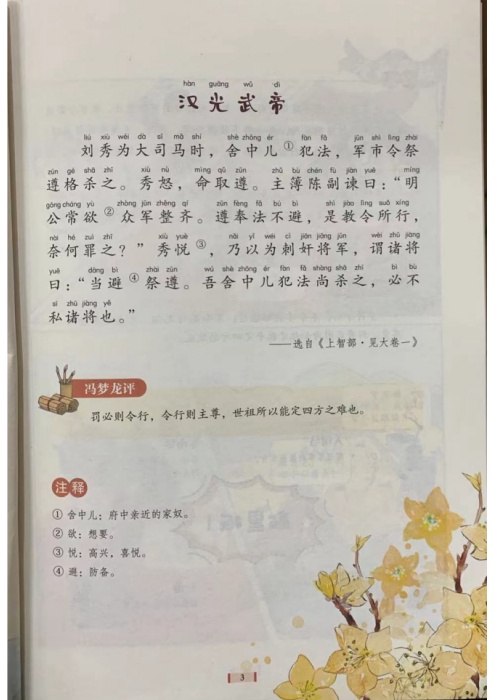 hàn guāng wǔ dì
汉光武帝
liú xiù wéi dà sī mǎ shí shè zhōng ér fàn fǎ jūn shì lìng zhài
刘秀为大司马时，舍中儿①犯法，军市令祭
zūn gé shā zhī xiù nù mìng qǔ zūn zhǔ bù chén fù jiàn yuē míng
遵格杀之。秀怒，命取遵。主簿陈副谏曰：“明
gōng cháng yù zhòng jūn zhěng qí zūn fèng fǎ bú bì shì jiào lìng suǒ xíng
公常欲②众军整齐。遵奉法不避，是教令所行，
nài hé zuì zhī xiù yuè nǎi yǐ wéi cì jiān jiāng jūn wèi zhū jiàng
奈何罪之？”秀悦③，乃以为刺奸将军，谓诸将
yuē dāng bì zhài zūn wú shè zhōng ér fàn fǎ shàng shā zhī bì bù
曰：“当避④祭遵。吾舍中儿犯法尚杀之，必不
sī zhū jiàng yě
私诸将也。”
——选自《上智部·见大卷一》
冯梦龙评
罚必则令行，令行则主尊，世祖所以能定四方之难也。
注释
① 舍中儿：府中亲近的家奴。
② 欲：想要。
③ 悦：高兴，喜悦。
④ 避：防备。
3